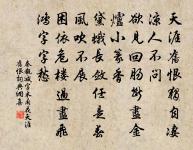 天涯舊恨獨自淒
涼人不問
欲見回腸斷盡金
爐小篆香
黛蛾長斂任是春
風吹不展
困依危樓過盡飛
鴻字字愁
秦觀減字木蘭花天涯
舊恨詞典網